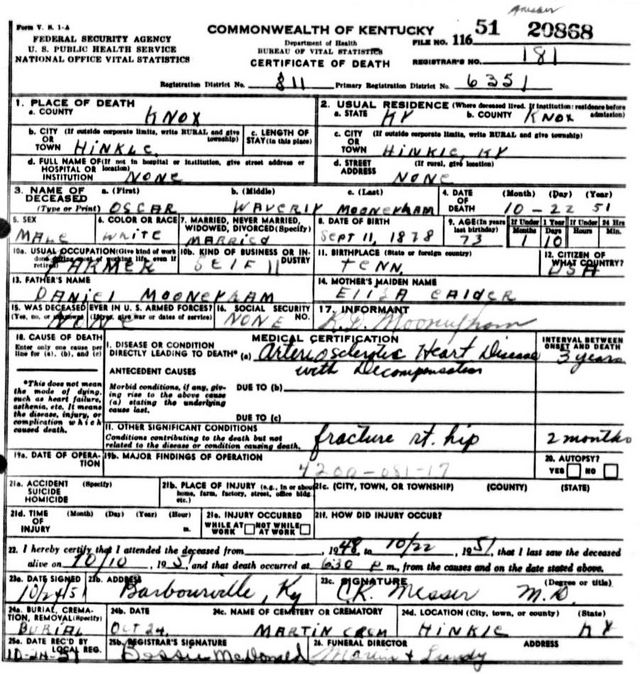 Form V. S. 1-A
FEDERAL SECURITY AGENCY
U. S. PUBLIC HEALTH SERVICE
NATIONAL OFFICE VITAL STATISTICS
COMMONWEALTH OF KENTUCKY
Department of Health
BUREAU OF VITAL STATISTICS
CERTIFICATE OF DEATH
FILE NO. 116 51 20868
REGISTRAR'S NO. 181
Registration District No. 811 Primary Registration District No. 6351
1. PLACE OF DEATH
a. COUNTY KNOX
2. USUAL RESIDENCE (Where deceased lived. If institution: residence before admission)
a. STATE KY b. COUNTY KNOX
b. CITY (If outside corporate limits, write RURAL and give township) OR TOWN HINKLE,
c. LENGTH OF STAY (in this place)
c. CITY (If outside corporate limits, write RURAL and give township) OR TOWN HINKLE, KY
d. FULL NAME OF (If not in hospital or institution, give street address or location) HOSPITAL OR INSTITUTION NONE
d. STREET ADDRESS (If rural, give location) NONE
3. NAME OF DECEASED (Type or Print) a. (First) OSCAR b. (Middle) WAVERLY c. (Last) MOONEYHAM
4. DATE OF DEATH (Month) (Day) (Year) 10-22 51
5. SEX MALE
6. COLOR OR RACE WHITE
7. MARRIED, NEVER MARRIED, WIDOWED, DIVORCED (Specify) MARRIED
8. DATE OF BIRTH SEPT 11, 1878
9. AGE (In years last birthday) 73 If Under 1 Year Months 1 Days 10 If Under 24 Hrs. Hours Min.
10a. USUAL OCCUPATION (Give kind of work done during most of working life, even if retired) FARMER
10b. KIND OF BUSINESS OR INDUSTRY SELF 11
11. BIRTHPLACE (State or foreign country) TENN,
12. CITIZEN OF WHAT COUNTRY? USA
13. FATHER'S NAME DANIEL MOONEYHAM
14. MOTHER'S MAIDEN NAME ELIZA
15. WAS DECEASED EVER IN U. S. ARMED FORCES? (Yes, no, or unknown) (If yes, give war or dates of service) NONE
16. SOCIAL SECURITY NO. NONE
17. INFORMANT Mooneyham
18. CAUSE OF DEATH
Enter only one cause per line for (a), (b), and (c)
*This does not mean the mode of dying, such as heart failure, asthenia, etc. It means the disease, injury, or complication which caused death.
MEDICAL CERTIFICATION
INTERVAL BETWEEN ONSET AND DEATH
I. DISEASE OR CONDITION DIRECTLY LEADING TO DEATH* (a) Arteriosclerotic Heart Disease 3 years
with Decompensation
ANTECEDENT CAUSES
Morbid conditions, if any, giving rise to the above cause (a) stating the underlying cause last.
DUE TO (b)
DUE TO (c)
II. OTHER SIGNIFICANT CONDITIONS
Conditions contributing to the death but not related to the disease or condition causing death.
fracture rt. hip 2 months
19a. DATE OF OPERATION
19b. MAJOR FINDINGS OF OPERATION
4200-081-17
20. AUTOPSY? YES NO
21a. ACCIDENT SUICIDE HOMICIDE (Specify)
21b. PLACE OF INJURY (e.g., in or about home, farm, factory, street, office bldg., etc.)
21c. (CITY, TOWN, OR TOWNSHIP) (COUNTY) (STATE)
21d. TIME OF INJURY (Month) (Day) (Year) (Hour) m.
21e. INJURY OCCURRED WHILE AT WORK NOT WHILE AT WORK
21f. HOW DID INJURY OCCUR?
22. I hereby certify that I attended the deceased from , 1948 to 10/22, 1951, that I last saw the deceased
alive on 10/10, 1951, and that death occurred at 6:30 p m., from the causes and on the date stated above.
23a. DATE SIGNED 10/24/51
23b. ADDRESS Barbourville, Ky
23c. SIGNATURE C.K. Messer M.D. (Degree or title)
24a. BURIAL, CREMATION, REMOVAL (Specify) BURIAL
24b. DATE OCT 24,
24c. NAME OF CEMETERY OR CREMATORY MARTIN CREM
24d. LOCATION (City, town, or county) (State) HINKLE KY
25a. DATE REC'D BY LOCAL REG. 10-24-51
25b. REGISTRAR'S SIGNATURE Bossie McDonald
26. FUNERAL DIRECTOR ADDRESS Martin + Lundy